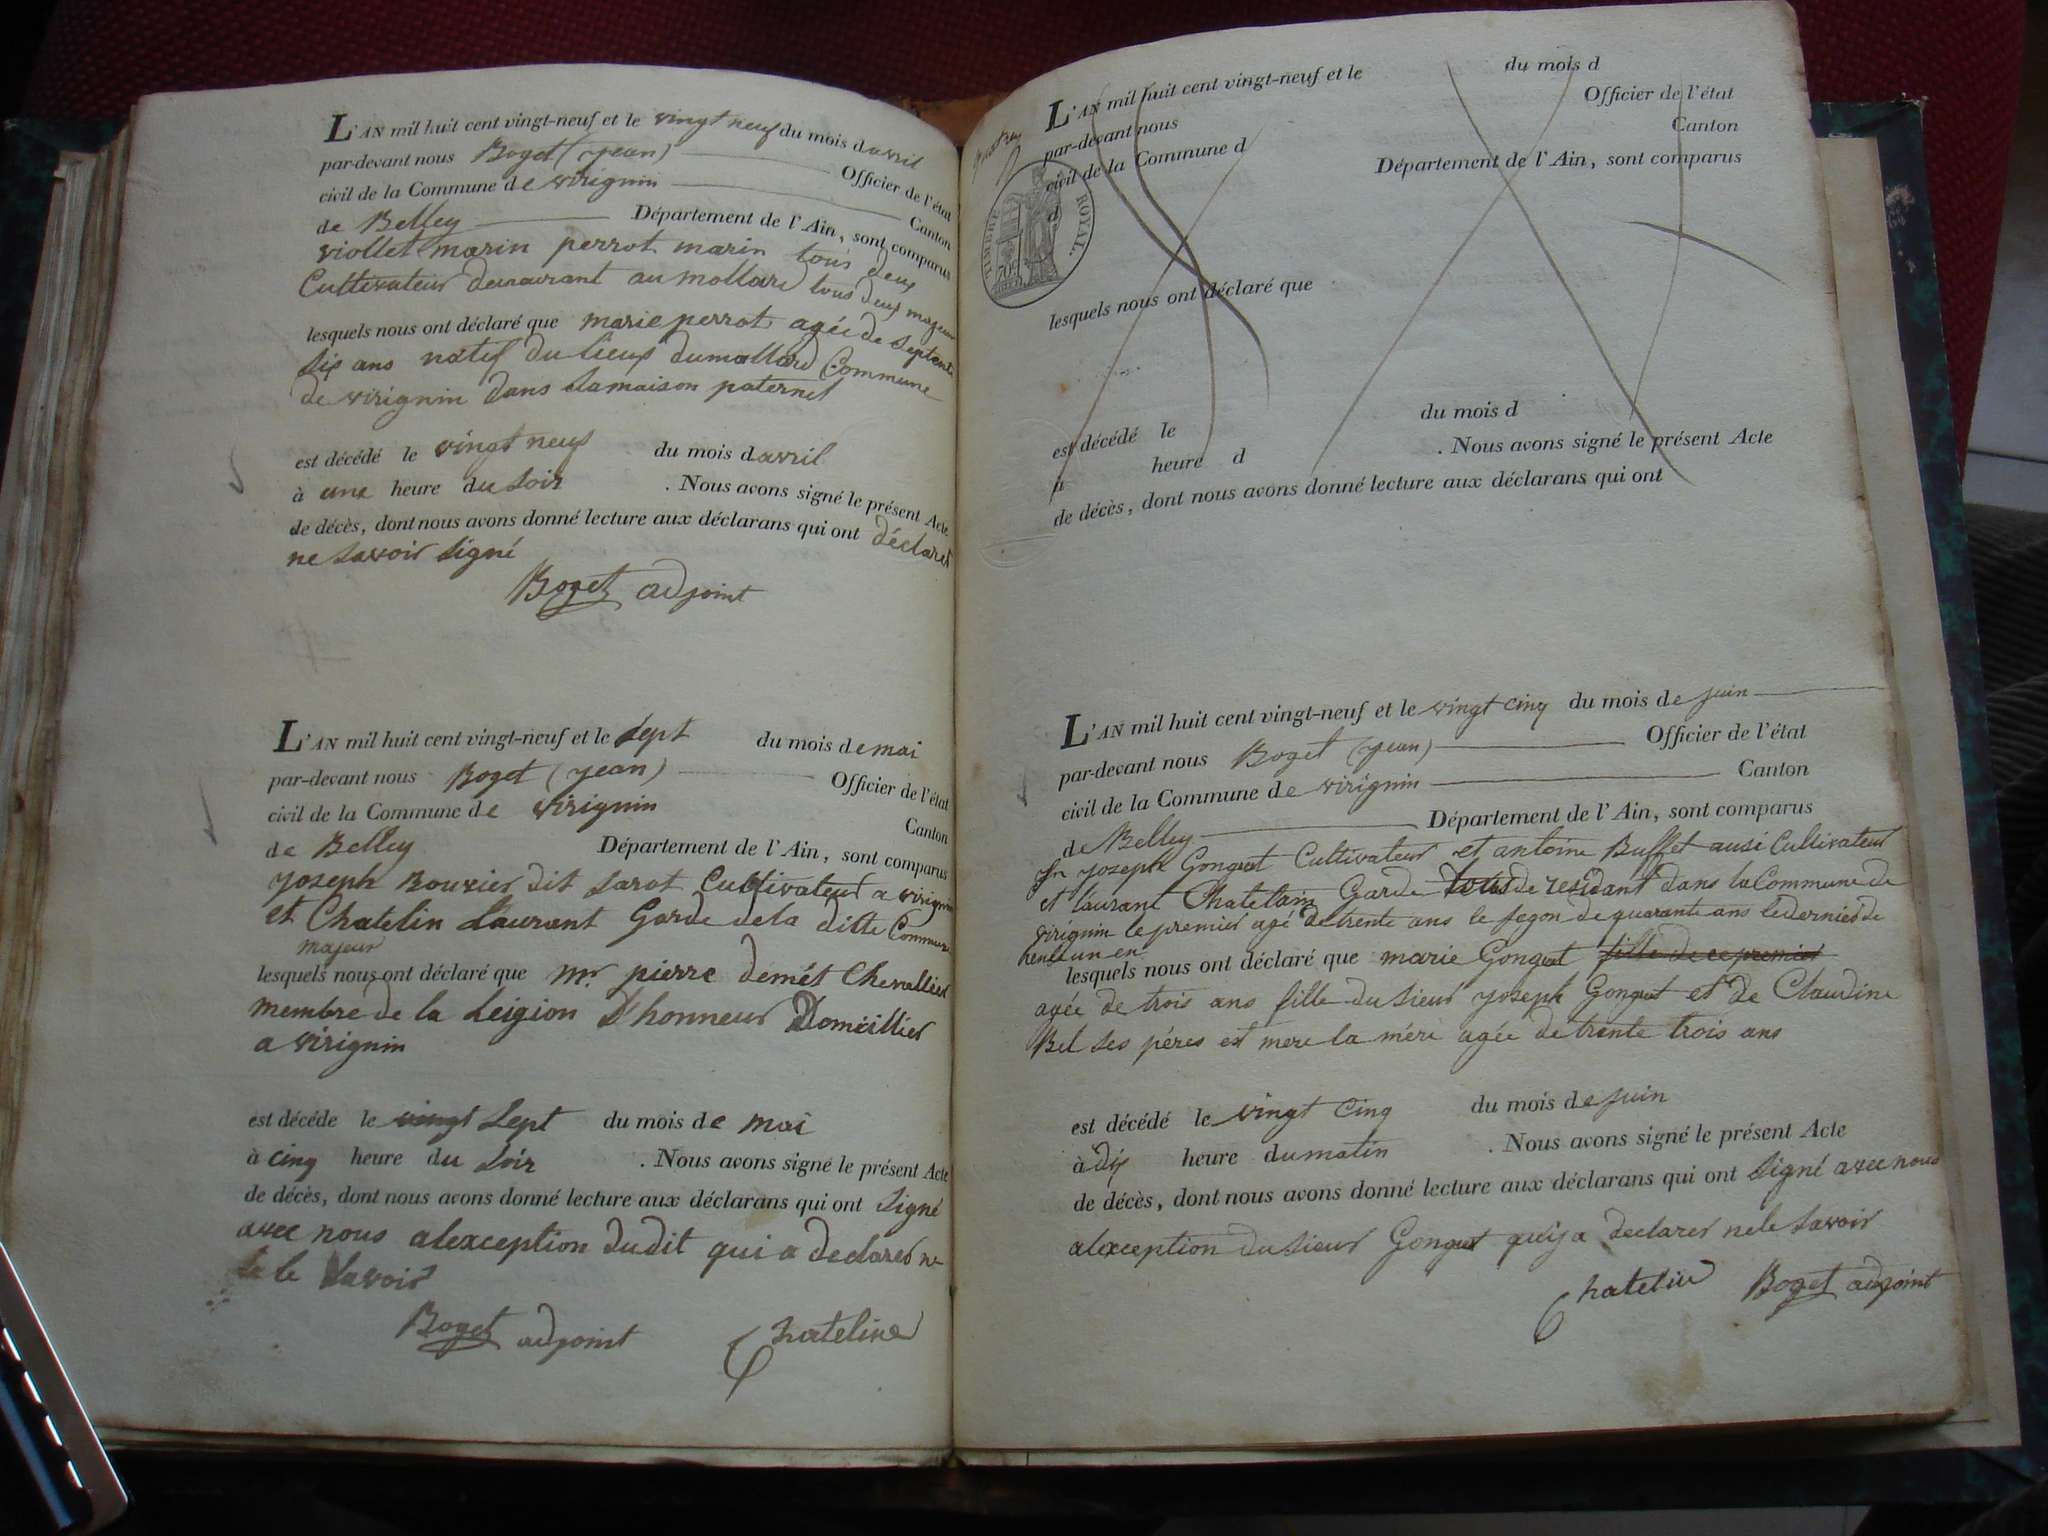 L'AN mil huit cent vingt-neuf et le vingt neuf du mois d avril
par-devant nous Boget (jean) Officier de l'état
civil de la Commune de virignin Canton
de Belley Département de l'Ain, sont comparus
viollet marin perrot marin tous deux
Cultivateur demeurant au mollard tous deux majeur
lesquels nous ont déclaré que marie perrot agée de septente
six ans natif du lieux du mollard Commune
de virignin dans sa maison paternel
est décédé le vingt neuf du mois d avril
à une heure du soir . Nous avons signé le présent Acte
de décès, dont nous avons donné lecture aux déclarans qui ont déclarer
ne savoir signé
Boget adjoint
L'AN mil huit cent vingt-neuf et le sept du mois de mai
par-devant nous Boget (jean) Officier de l'état
civil de la Commune de virignin Canton
de Belley Département de l'Ain, sont comparus
joseph Bouvier dit sarot Cultivateur a virignin
et Chatelin Laurant Garde de la ditte Commune
majeur
lesquels nous ont déclaré que mr. pierre demét Chevallier
membre de la Leigion D'honneur Domicillier
a virignin
est décédé le vingt sept du mois de mai
à cinq heure du soir . Nous avons signé le présent Acte
de décès, dont nous avons donné lecture aux déclarans qui ont signé
avec nous alexception dudit qui a declarer ne
le savoir
Boget adjoint Chateline
L'AN mil huit cent vingt-neuf et le du mois d
par-devant nous Officier de l'état
civil de la Commune d Canton
d Département de l'Ain, sont comparus
TIMBRE ROYAL.
70c
lesquels nous ont déclaré que
est décédé le du mois d
à heure d . Nous avons signé le présent Acte
de décès, dont nous avons donné lecture aux déclarans qui ont
L'AN mil huit cent vingt-neuf et le vingt cinq du mois de juin
par-devant nous Boget (jean) Officier de l'état
civil de la Commune de virignin Canton
de Belley Département de l'Ain, sont comparus
joseph Gonguet Cultivateur et antoine Buffet ausi Cultivateur
et laurant Chatelain Garde tous de residant dans la Commune de
virignin le premier agé de trente ans le segon de quarante ans le dernier de
un en
lesquels nous ont déclaré que marie Gonguet fille de ce premier
agée de trois ans fille du sieur joseph Gonguet et de Claudine
Bel ses péres et mere la mére agée de trente trois ans
est décédé le vingt cinq du mois de juin
à dix heure du matin . Nous avons signé le présent Acte
de décès, dont nous avons donné lecture aux déclarans qui ont signé avec nous
alexception du sieur Gonguet qui j a declarer ne le savoir
Chatelin Boget adjoint